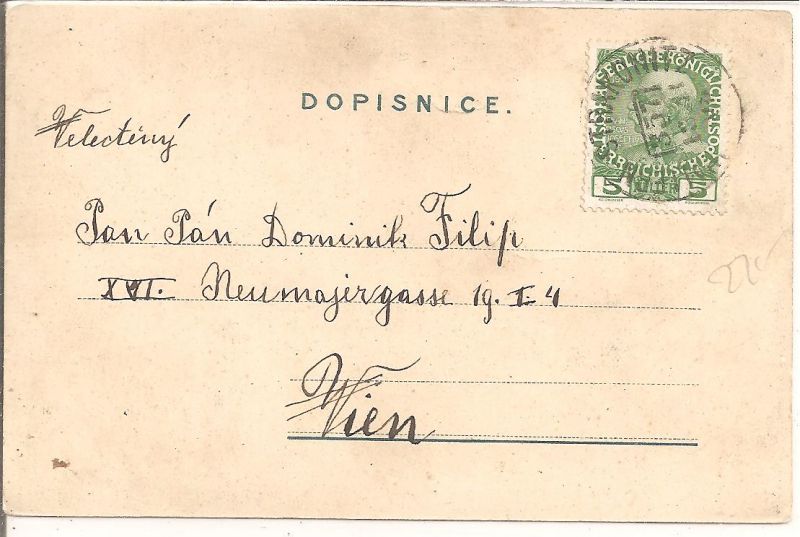 DOPISNICE.
KAISERLICHE KÖNIGLICHE
ÖSTERREICHISCHE POST
5 HELLER 5
Velectěný
Pan Pán Dominik Filip
XVI. Neumajergasse 19. I. 4
Wien